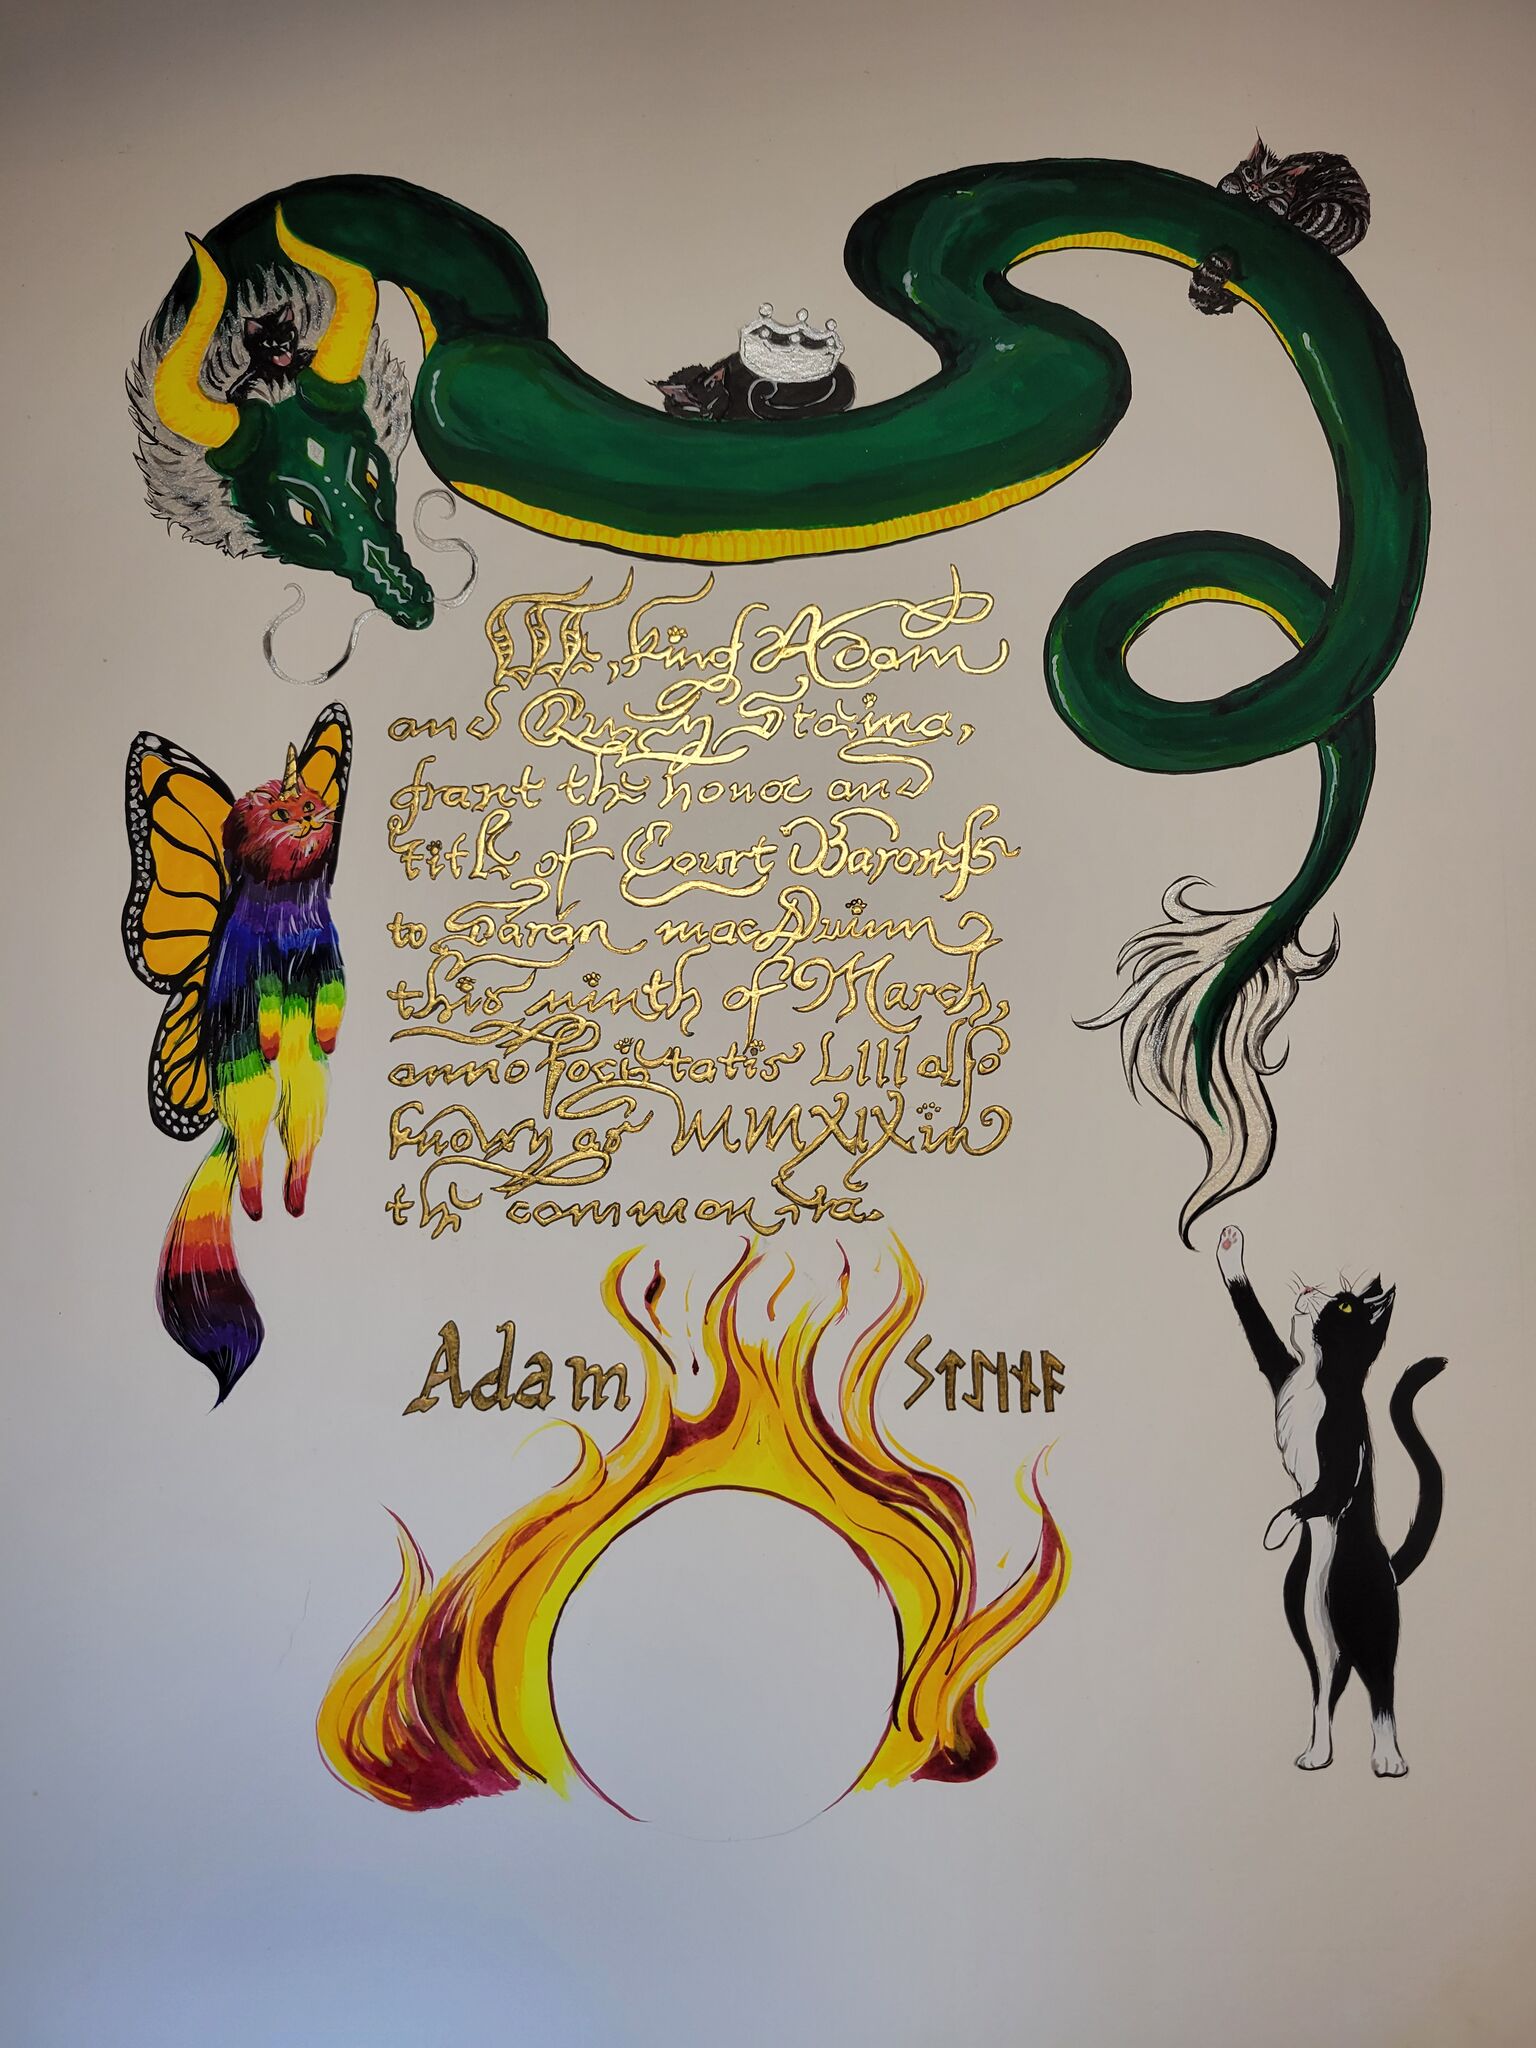 We, king Adam
and Queen Staina,
grant the honor and
title of Court Baroness
to Tárán mac Duinn
this ninth of March,
anno societatis LIII also
known as MMXIX in
the common era.
Adam ᛊᛏᛇᛁᚾᚨ